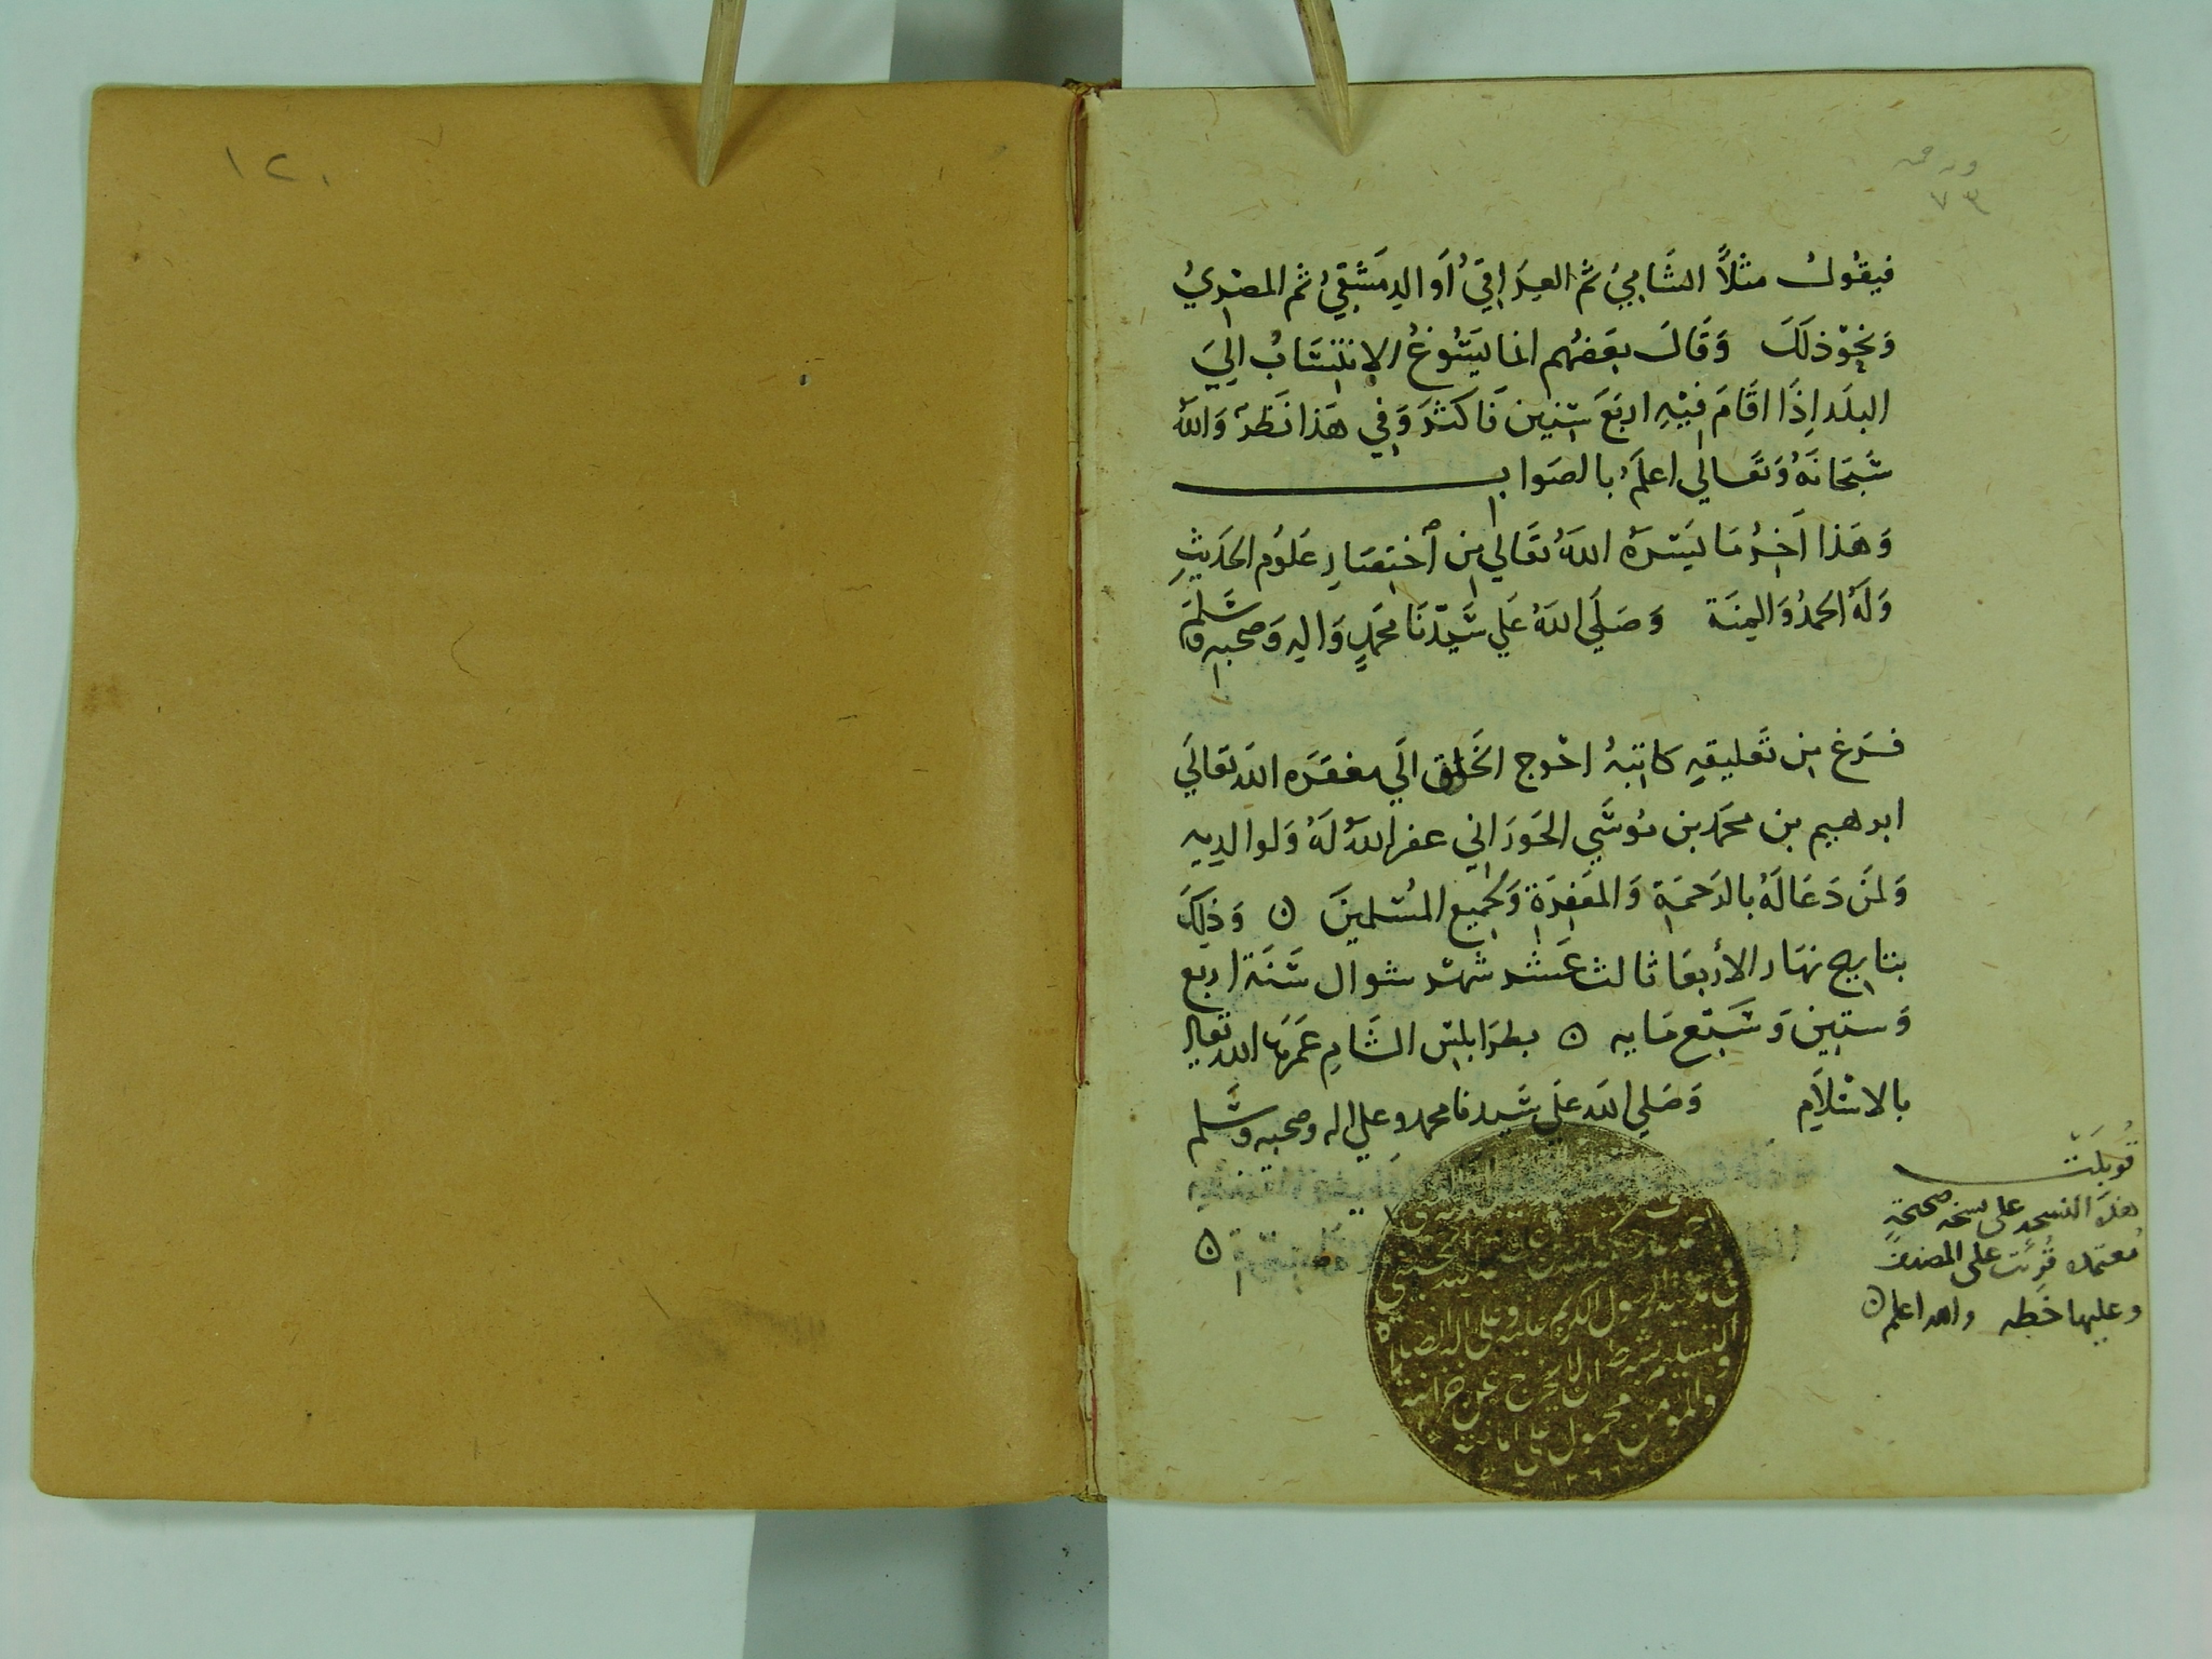 ورقه
٧٣
فيقُولُ مثلاً الشَّامِيُ ثم العِرَاقِيُ أو الدِمَشقِيُ ثم المصْرِيُ
وَنحوْ ذلَكَ وَقَالَ بعَضهُم انما يَسُوغُ الإنتِسَابُ اليَ
البلَد إذَا اقَامَ فيْهِ اربَعَ سِنين فَاكثرَ وَفِي هَذا نَظرٌ وَالله
سُبحَانَهُ وَتعَالي اعلَمُ بالصَوابِ
وَهَذا آخِرُ مَا يَسَرَهُ اللهُ تعَالي مِن أختِصَارِ عَلُوم الحَديثِ
وَلَهُ الحمدُ وَالمِنَة وَصَلَي اللهُ عَلي سَيّدنَا محَمَدٍ وَالهِ وَصَحبهِ وَسَلمَ
فَرَغ مِن تَعليقهِ كاتبهُ احْوج الخَلق الَي مغفَرَه الله تعَالَي
ابرهيم بن محمَد بن مُوسَي الحَورَاني عفر اللهُ لَهُ وَلوالدِيهِ
وَلمنَ دَعَا لَهُ بالرَحمَةِ وَالمغَفِرَةِ وَلجَمِيع المُسْلمينَ ه وَذلِكَ
بتاريخ نهَار الأربعَا ثالث عَشر شهْر شوال سَنَة اربع
وَستين وَسَبْع مَايه ه بطرَابلسْ الشَامِ عَمَرهَا الله تعَالي
بالاسْلاَمِ وَصَلي الله عَلَي سَيدنا محمد وعلي اله وصحبه وَسَلم
قُوبلَتْ
هذه النسخه على نسخه صحيحةٍ
مُعتمده قُرئت على المصنف
وعليها خَطه والله اعلم ه
مدينة الرسول الكريم عليه وعلى اله الصلاة
والتسليم بشرط ان لا يخرج عن خزانته
والمؤمن محمول على امانته
١٢٦٦
١٢٠